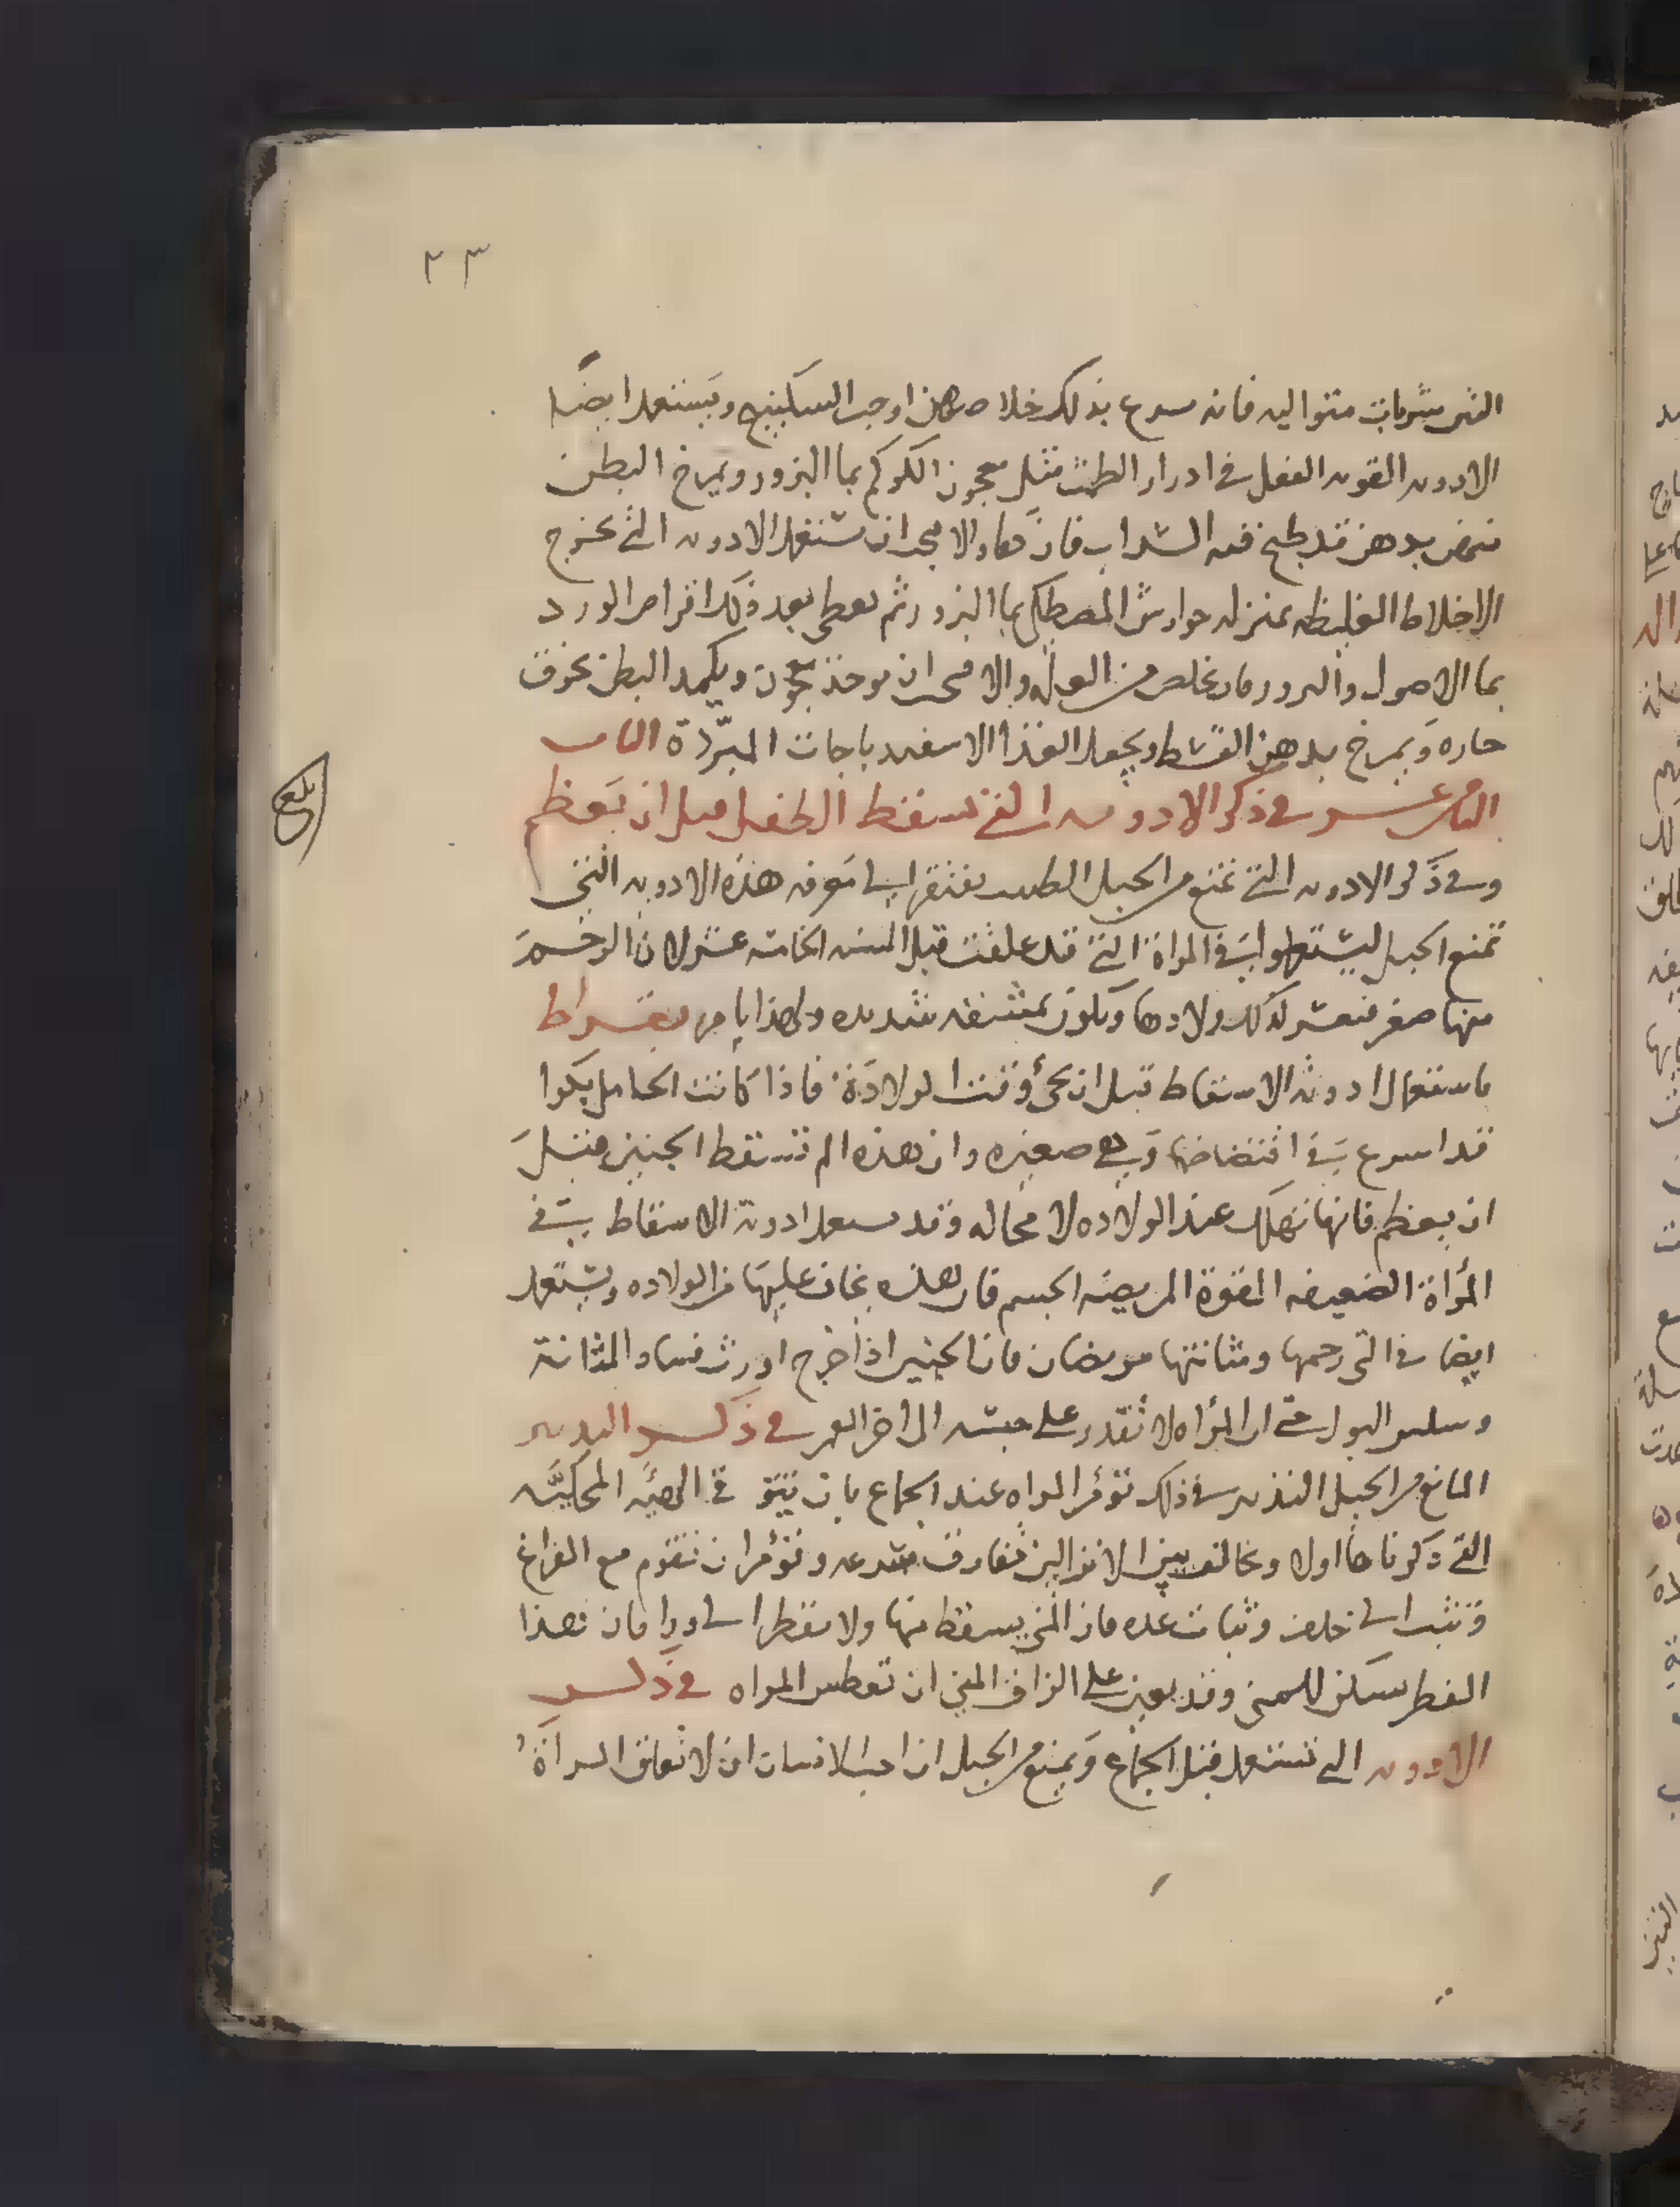 ٢٣
الشر شربات متواليه فانه يسرع بذلك خلاص هذا وحب السكبينج ويستعمل ايضًا
الادويه القويه الفعل في ادرار الطمث مثل معجون الكوكم بما البزور ويمرخ البطن
منهن بدهن قد طبخ فيه السداب فان كفا والا فيجب ان تستعمل الادويه التي تخرج
الاخلاط الغليظه بمنزله جوارش المصطكى بما البزور ثم يعطى بعد ذلك اقراص الورد
بما الاصول والبزور فان تخلص من العله والا فيجب ان يوخذ معجون ويكمد البطن بخرق
حاره ويمرخ بدهن القسط ويجعل الغذا الاسفيدباجات المبرّدة الباب
الثامن عشر في ذكر الادويه التي تسقط الطفل قبل ان يعظم
وفي ذكر الادويه التي تمنع من الحبل الطبيب يفتقر الى معرفه هذه الادويه التي
تمنع الحبل ليستعملها في المراة التي قد علقت قبل السنه الخامسه عشر لان الرحم
منها صغر فتعسر لذلك ولادها ويكون بمشقه شديده ولهذا يامر بقراط
باستعمال ادوية الاسقاط قبل ان يجئ وقت الولادة فاذا كانت الحامل بكرا
قد اسرع في افتضاضها وهي صغيره وان هذه الم تسقط الجنين قبل
ان يعظم فانها تهلك عند الولاده لا محاله وقد يستعمل ادوية الاسقاط في
المرأة الضعيفه القوة المريضه الجسم فان هذه يخاف عليها من الولاده ويستعمل
ايضا في التي رحمها ومثانتها مريضان فان الجنين اذا خرج اورث فساد المثانة
وسلس البول حتى ان المرأه لا تقدر على حبسه الى اخر العمر في ذكر التدبير
المانع من الحبل التدبير في ذلك تؤمر المراه عند الجماع بان تتوقى الهيئه المحكيّه
التي ذكرناها اولا وتخالف بين الانزالين تفارق بسرعه وتؤمر ان تقوم مع الفراغ
وتثب الى خلف وثبات عده فان المني يسقط منها ولا تطفر الى ورا فان هذا
الطفر يسكن للمني وقد يعين على ازلاق المني ان تعطس المراه في ذكر
الادويه التي تستعمل قبل الجماع ويمنع من الحبل ان احب الانسان ان لا تعلق المراة
بلغ